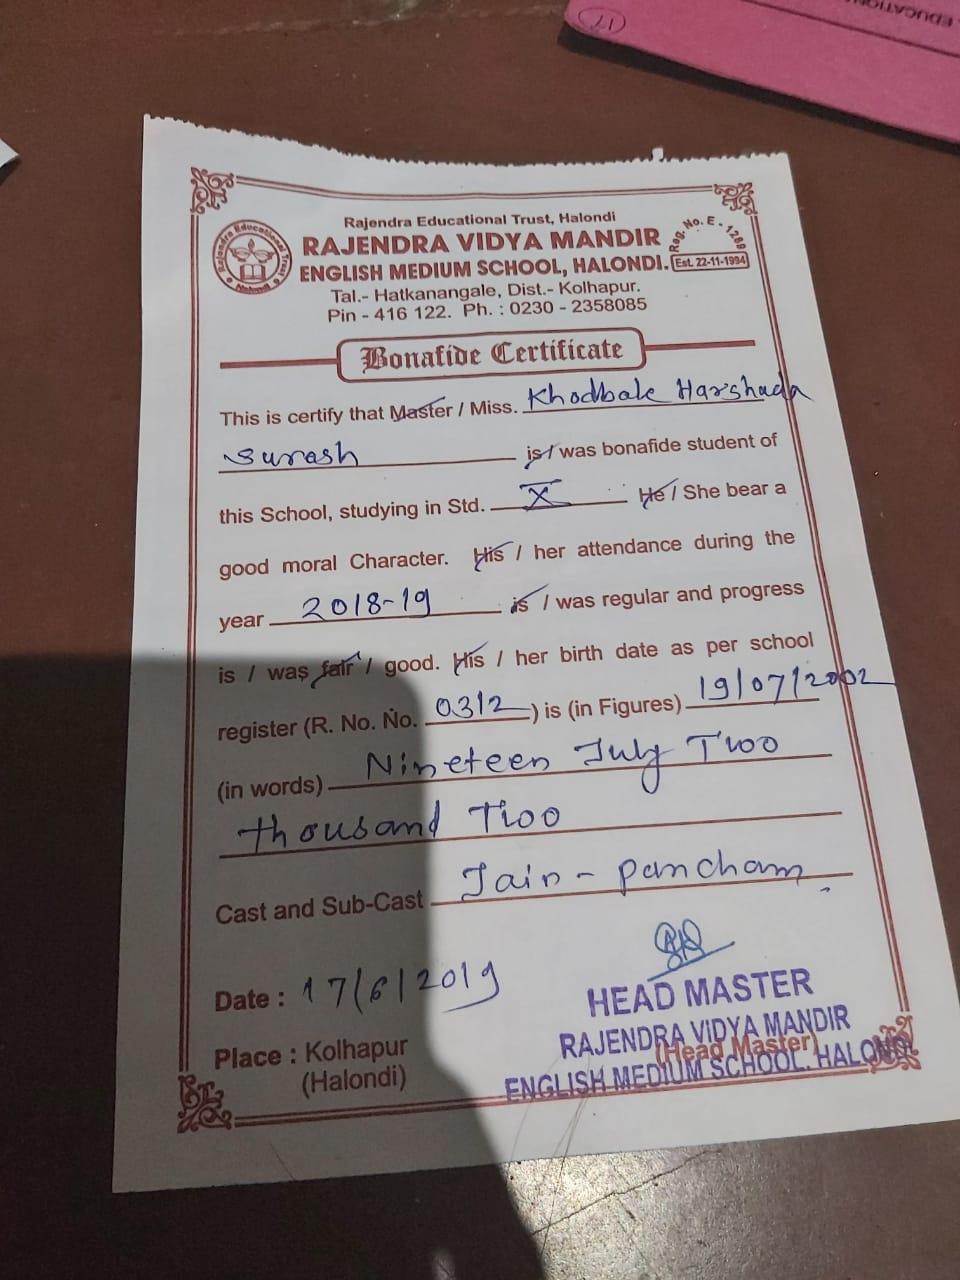 EDUCATION
17
Rajendra Educational Trust, Halondi
RAJENDRA VIDYA MANDIR
ENGLISH MEDIUM SCHOOL, HALONDI.
Tal.- Hatkanangale, Dist.- Kolhapur.
Pin - 416 122. Ph. : 0230 - 2358085
Rajendra Educational Trust
Halondi
Reg. No. E - 1289
Est. 22-11-1994
Bonafide Certificate
This is certify that Master / Miss. Khodbale Harshada
Surash is / was bonafide student of
this School, studying in Std. X He / She bear a
good moral Character. His / her attendance during the
year 2018-19 is / was regular and progress
is / was fair / good. His / her birth date as per school
register (R. No. No. 0312) is (in Figures) 19/07/2002
(in words) Nineteen July Two
thousand Two
Cast and Sub-Cast Jain - pancham
Date : 17/6/2019
Place : Kolhapur
(Halondi)
HEAD MASTER
RAJENDRA VIDYA MANDIR
(Head Master)
ENGLISH MEDIUM SCHOOL. HALONDI